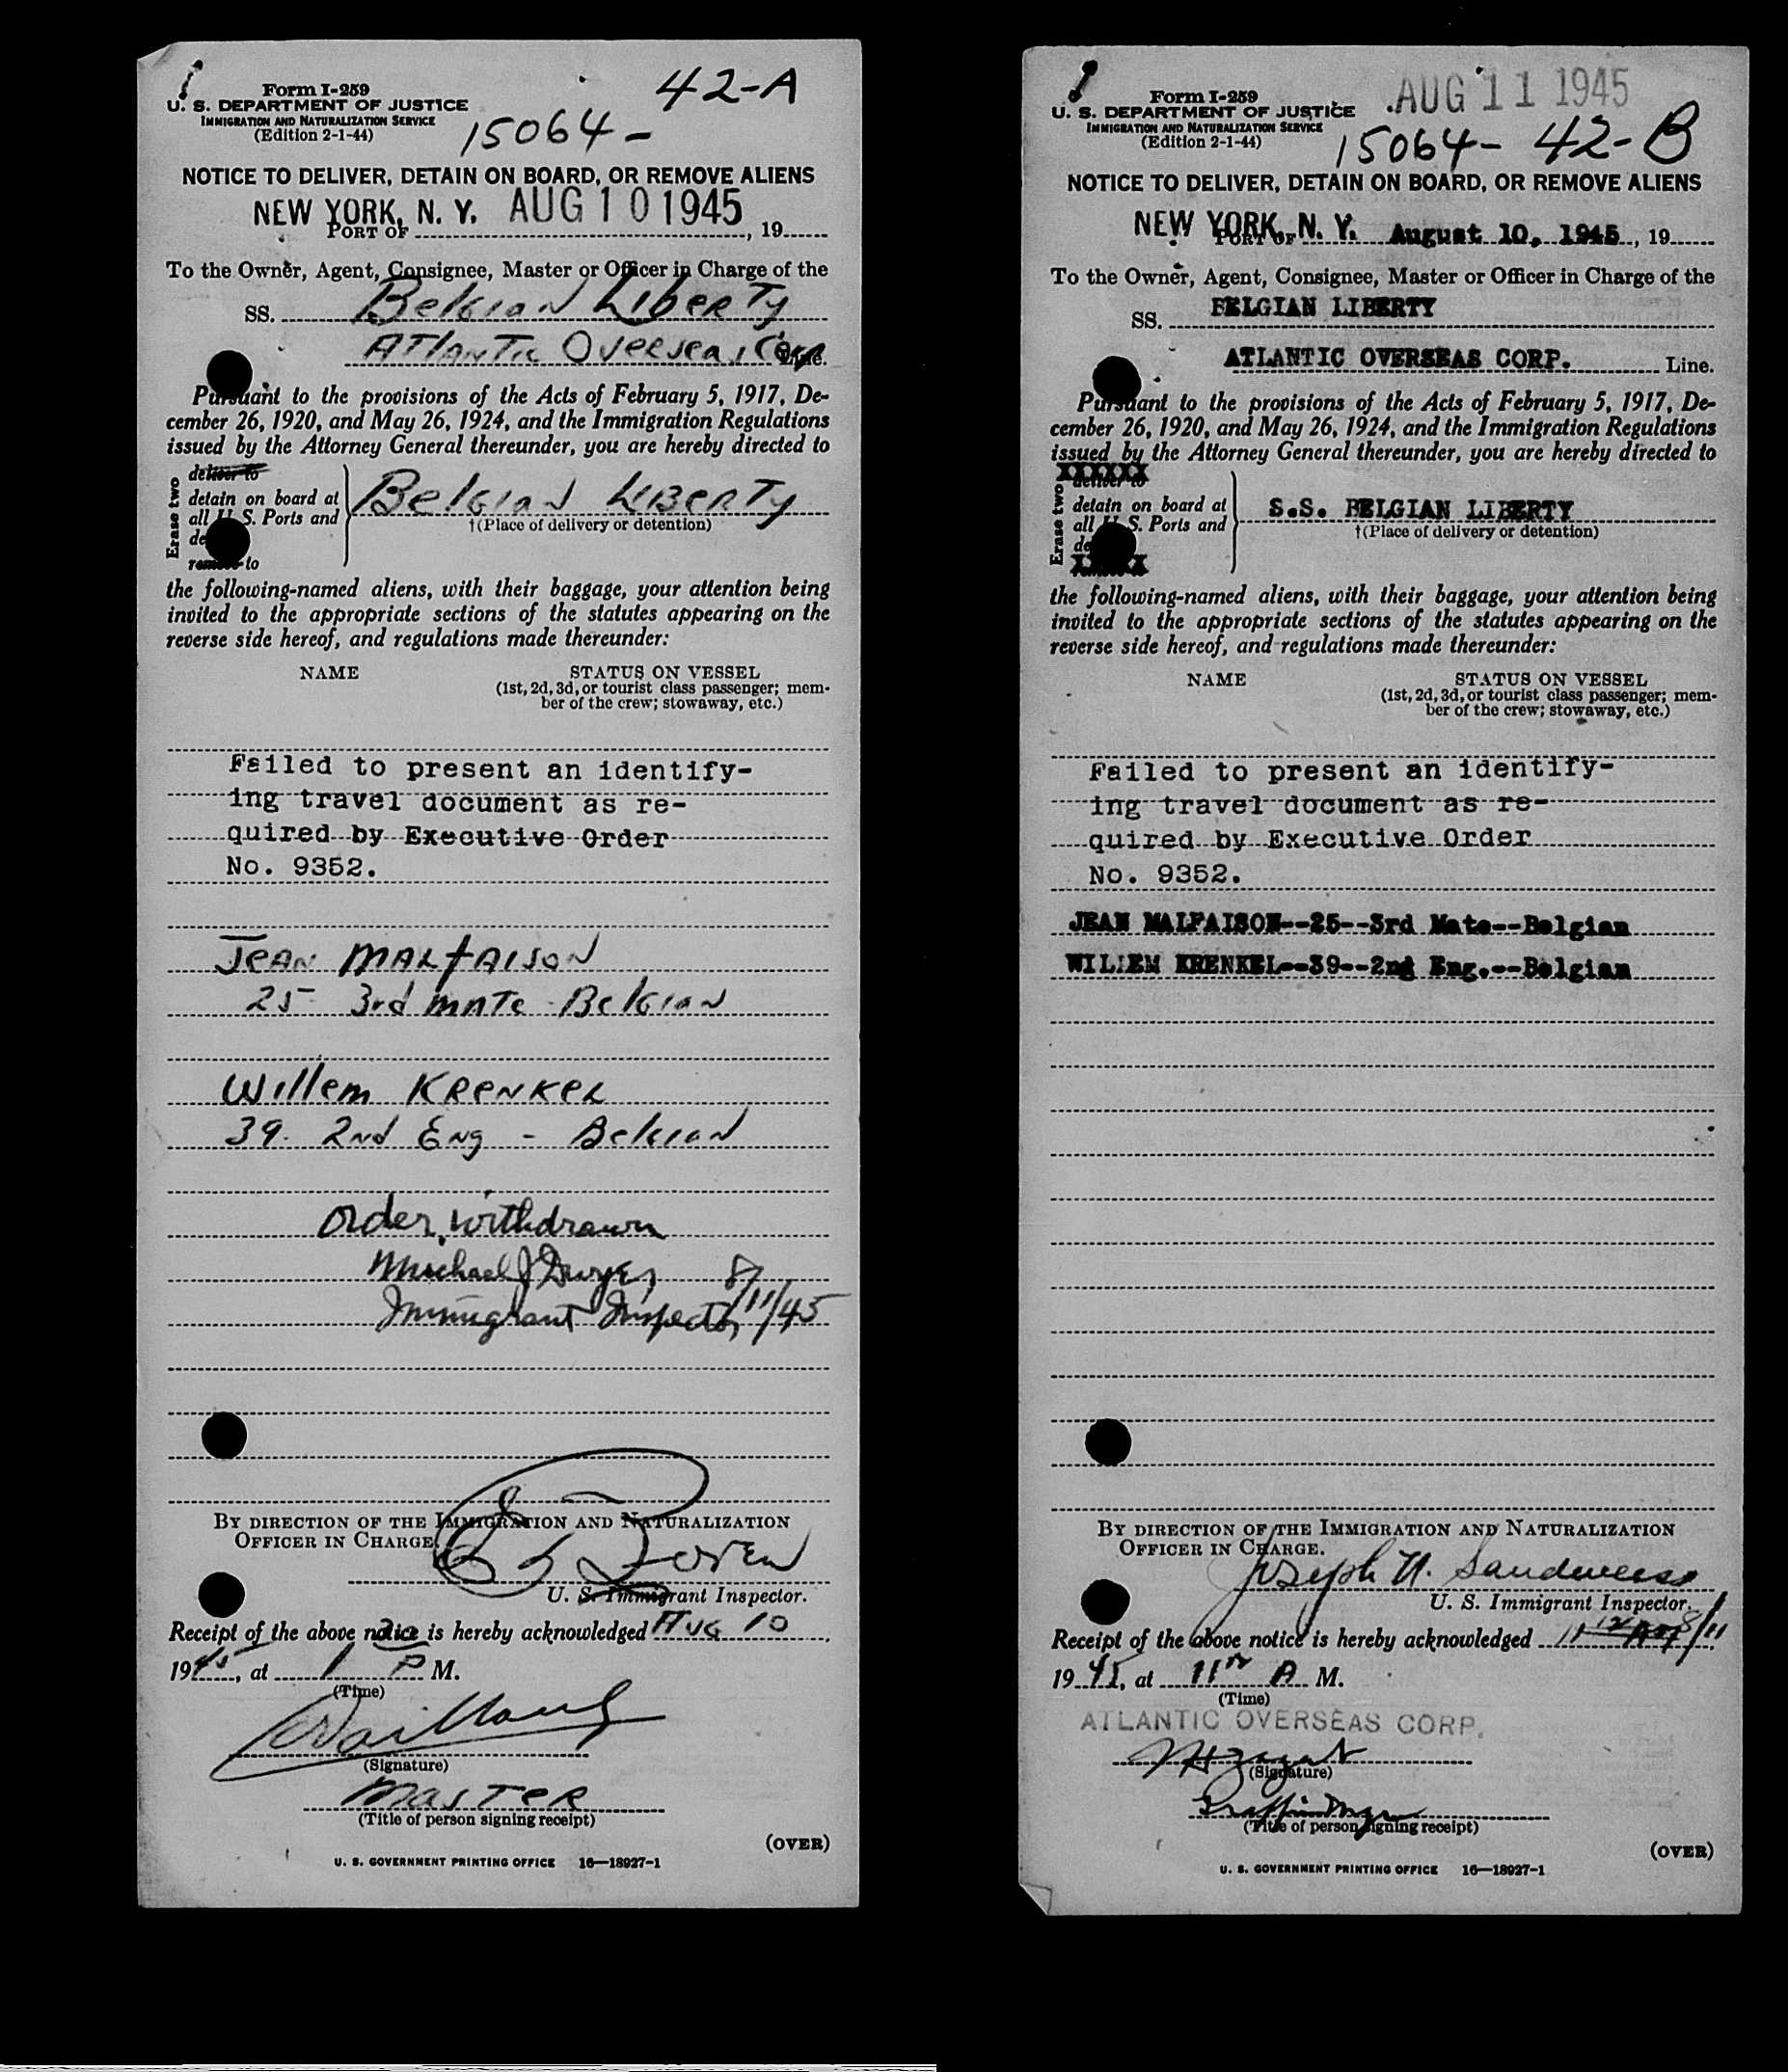 42-A
Form I-259
U. S. DEPARTMENT OF JUSTICE
IMMIGRATION AND NATURALIZATION SERVICE
(Edition 2-1-44)
15064-
NOTICE TO DELIVER, DETAIN ON BOARD, OR REMOVE ALIENS
NEW YORK, N. Y. AUG 10 1945
PORT OF , 19
To the Owner, Agent, Consignee, Master or Officer in Charge of the
SS. Belgian Liberty
Atlantic Overseas Corp Line.
Pursuant to the provisions of the Acts of February 5, 1917, De-
cember 26, 1920, and May 26, 1924, and the Immigration Regulations
issued by the Attorney General thereunder, you are hereby directed to
Erase two
deliver to
detain on board at
all U. S. Ports and
remove to
Belgian Liberty
†(Place of delivery or detention)
the following-named aliens, with their baggage, your attention being
invited to the appropriate sections of the statutes appearing on the
reverse side hereof, and regulations made thereunder:
NAME STATUS ON VESSEL
(1st, 2d, 3d, or tourist class passenger; mem-
ber of the crew; stowaway, etc.)
Failed to present an identify-
ing travel document as re-
quired by Executive Order
No. 9352.
Jean Malfaison
25 - 3rd Mate - Belgian
Willem Krenkel
39. 2nd Eng - Belgian
Order withdrawn
Michael J Dwyer 8/11/45
Immigrant Inspector
BY DIRECTION OF THE IMMIGRATION AND NATURALIZATION
OFFICER IN CHARGE.
U. S. Immigrant Inspector.
Receipt of the above notice is hereby acknowledged Aug 10
1945, at 1 P M.
(Time)
(Signature)
Master
(Title of person signing receipt)
(OVER)
U. S. GOVERNMENT PRINTING OFFICE 16—18927-1
AUG 11 1945
Form I-259
U. S. DEPARTMENT OF JUSTICE
IMMIGRATION AND NATURALIZATION SERVICE
(Edition 2-1-44)
15064- 42-B
NOTICE TO DELIVER, DETAIN ON BOARD, OR REMOVE ALIENS
NEW YORK, N. Y. August 10, 1945
PORT OF , 19
To the Owner, Agent, Consignee, Master or Officer in Charge of the
SS. BELGIAN LIBERTY
ATLANTIC OVERSEAS CORP. Line.
Pursuant to the provisions of the Acts of February 5, 1917, De-
cember 26, 1920, and May 26, 1924, and the Immigration Regulations
issued by the Attorney General thereunder, you are hereby directed to
Erase two
XXXXXX
deliver to
detain on board at
all U. S. Ports and
S.S. BELGIAN LIBERTY
†(Place of delivery or detention)
the following-named aliens, with their baggage, your attention being
invited to the appropriate sections of the statutes appearing on the
reverse side hereof, and regulations made thereunder:
NAME STATUS ON VESSEL
(1st, 2d, 3d, or tourist class passenger; mem-
ber of the crew; stowaway, etc.)
Failed to present an identify-
ing travel document as re-
quired by Executive Order
No. 9352.
JEAN MALFAISON--25--3rd Mate--Belgian
WILLEM KRENKEL--39--2nd Eng.--Belgian
BY DIRECTION OF THE IMMIGRATION AND NATURALIZATION
OFFICER IN CHARGE.
Joseph H. Sandweiss
U. S. Immigrant Inspector.
Receipt of the above notice is hereby acknowledged 8/11
1945, at 11 A M.
(Time)
ATLANTIC OVERSEAS CORP.
(Signature)
(Title of person signing receipt)
(OVER)
U. S. GOVERNMENT PRINTING OFFICE 16—18927-1